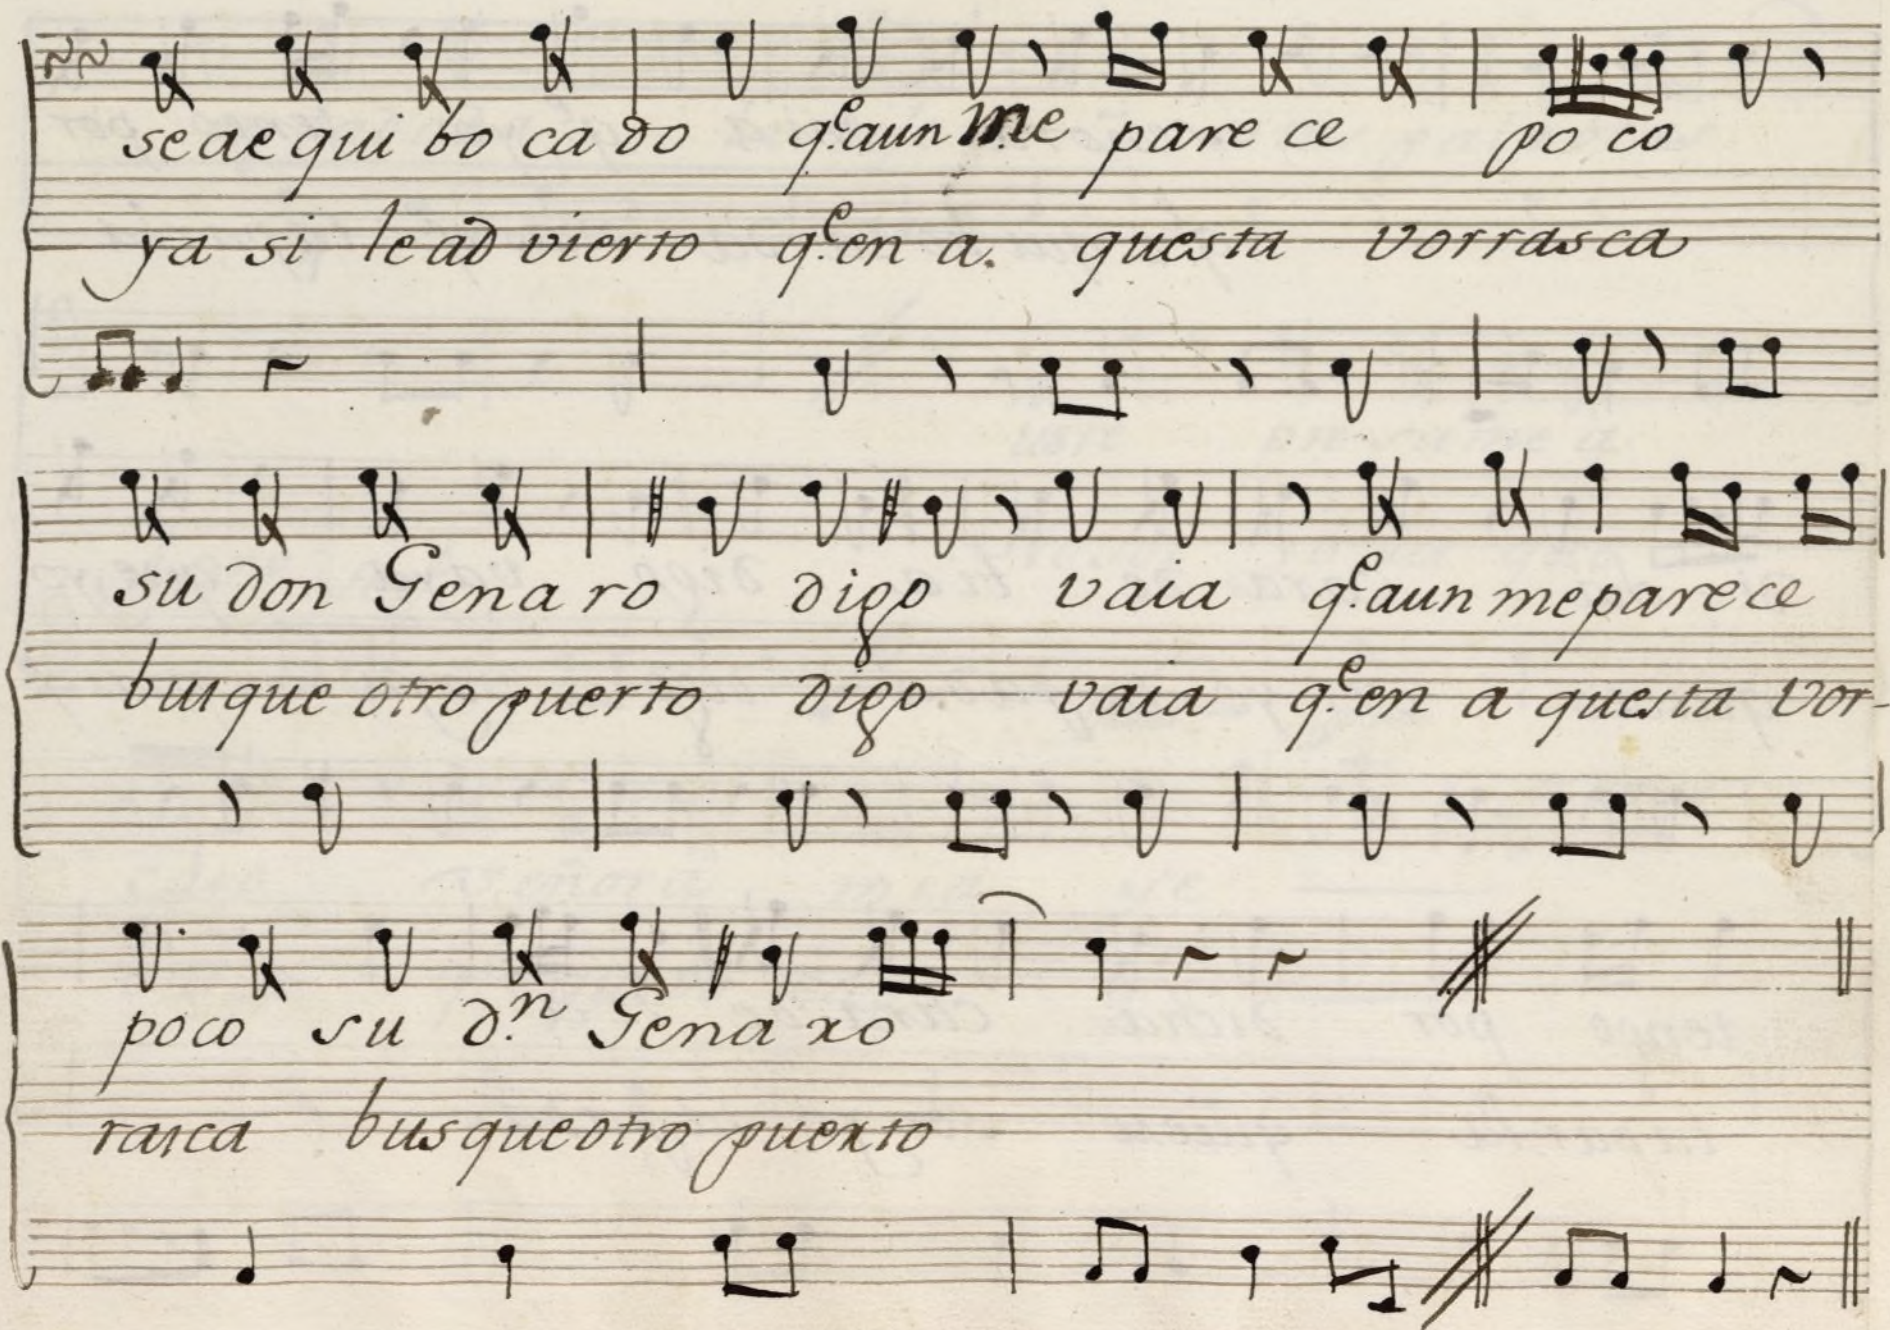 se ae qui bo ca do q.e aun me pare ce po co
ya si le ad vierto q.e en a. questa vorrasca
su don Gena ro digo vaia q.e aun me pare ce
busque otro puerto digo. vaia q.e en a questa vor-
poco su d.n Gena ro
rasca busque otro puerto